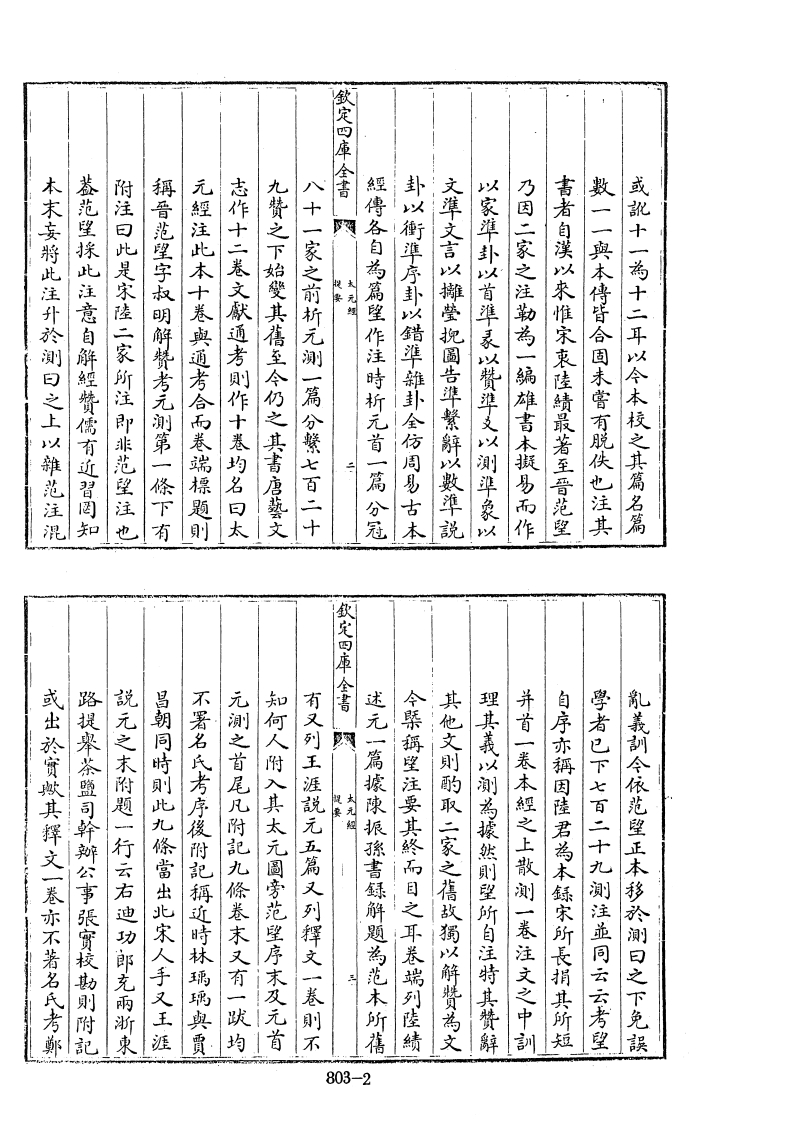 或訛十一為十二耳以今本校之其篇名篇
數一一與本傳皆合固未嘗有脱佚也注其
書者自漢以來惟宋衷陸績最著至晉范望
乃因二家之注勒為一編雄書本擬易而作
以家準卦以首準彖以贊準爻以測準象以
文準文言以攡瑩掜圖告準繫辭以數準説
卦以衝準序卦以錯準雜卦全仿周易古本
經傳各自為篇望作注時析元首一篇分冠
欽定四庫全書
太元經
提要
二
八十一家之前析元測一篇分繫七百二十
九贊之下始變其舊至今仍之其書唐藝文
志作十二卷文獻通考則作十卷均名曰太
元經注此本十卷與通考合而卷端標題則
稱晉范望字叔明解贊考元測第一條下有
附注曰此是宋陸二家所注即非范望注也
蓋范望採此注意自解經贊儒有近習罔知
本末妄將此注升於測曰之上以雜范注混
亂義訓今依范望正本移於測曰之下免誤
學者已下七百二十九測注並同云云考望
自序亦稱因陸君為本録宋所長捐其所短
并首一卷本經之上散測一卷注文之中訓
理其義以測為據然則望所自注特其贊辭
其他文則酌取二家之舊故獨以解贊為文
今槩稱望注要其終而目之耳卷端列陸績
述元一篇據陳振孫書録解題為范本所舊
欽定四庫全書
太元經
提要
三
有又列王涯説元五篇又列釋文一卷則不
知何人附入其太元圖旁范望序末及元首
元測之首尾凡附記九條卷末又有一跋均
不署名氏考序後附記稱近時林瑀瑀與賈
昌朝同時則此九條當出北宋人手又王涯
説元之末附題一行云右迪功郎充兩浙東
路提舉茶鹽司幹辦公事張實校勘則附記
或出於實歟其釋文一卷亦不著名氏考鄭
803-2